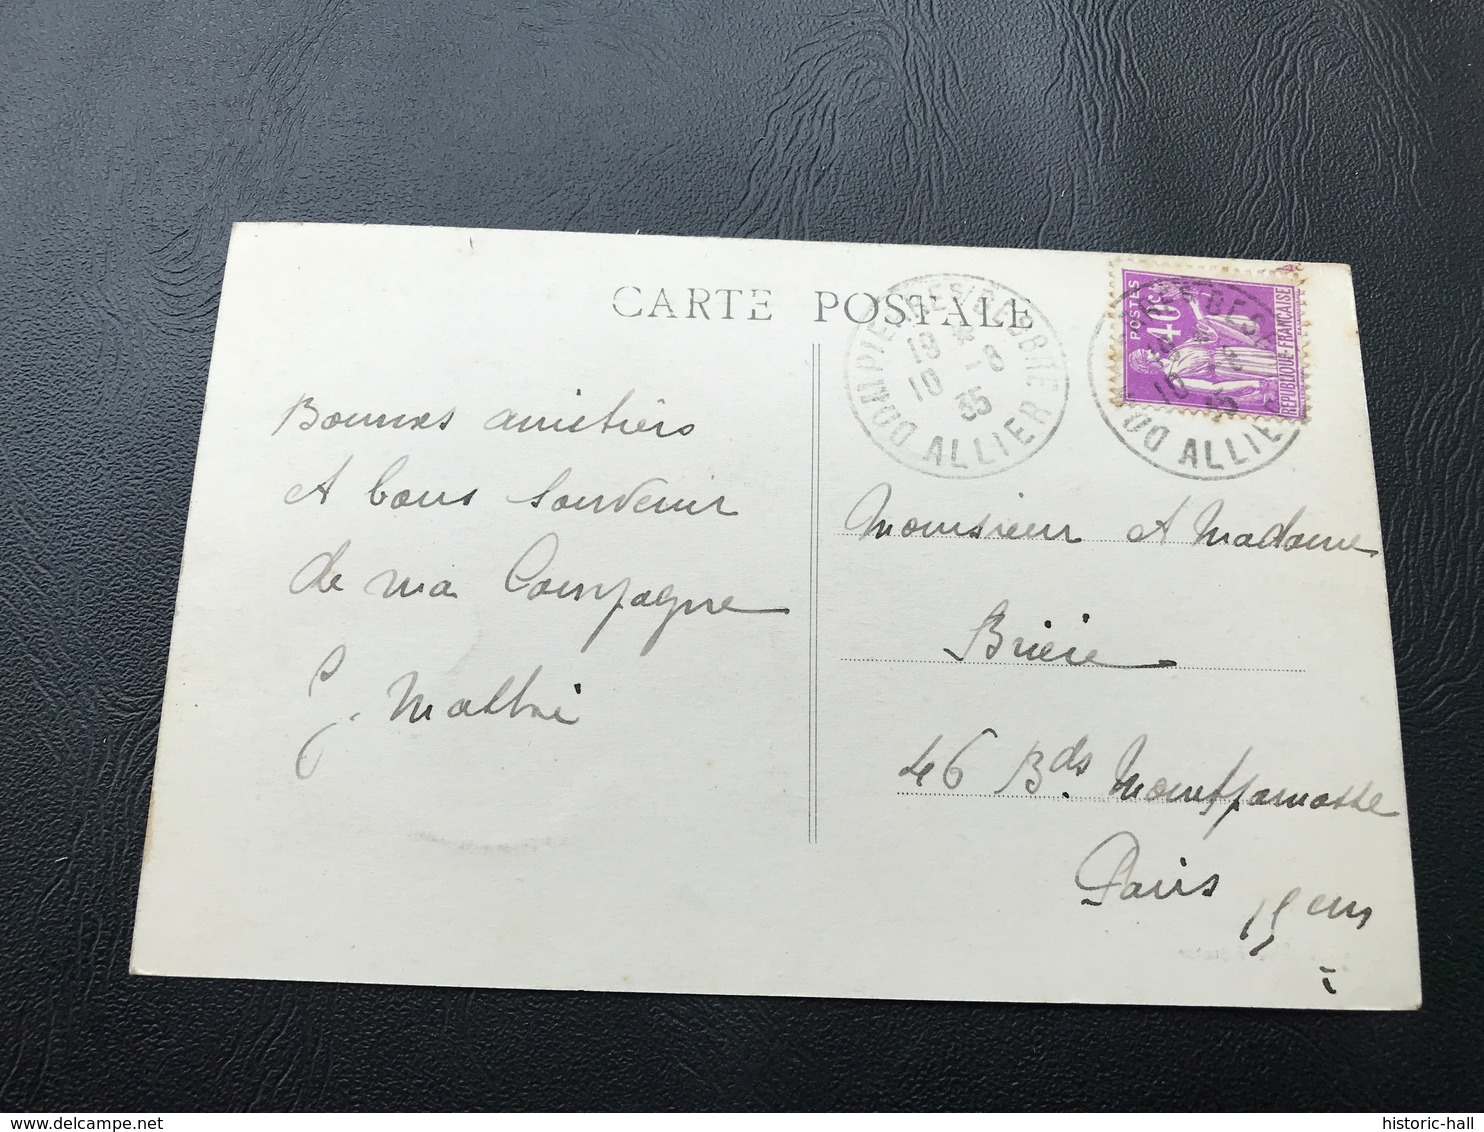 CARTE POSTALE
DOMPIERRE S/ BESBRE
19 * 
10 -8
35
ALLIER
POSTES
40c
REPUBLIQUE-FRANÇAISE
Bonnes amitiés
et bons souvenir
de ma Compagne
Monsieur et Madame
Brière
46 Bds. Montparnasse
Paris 15 em
historic-hall